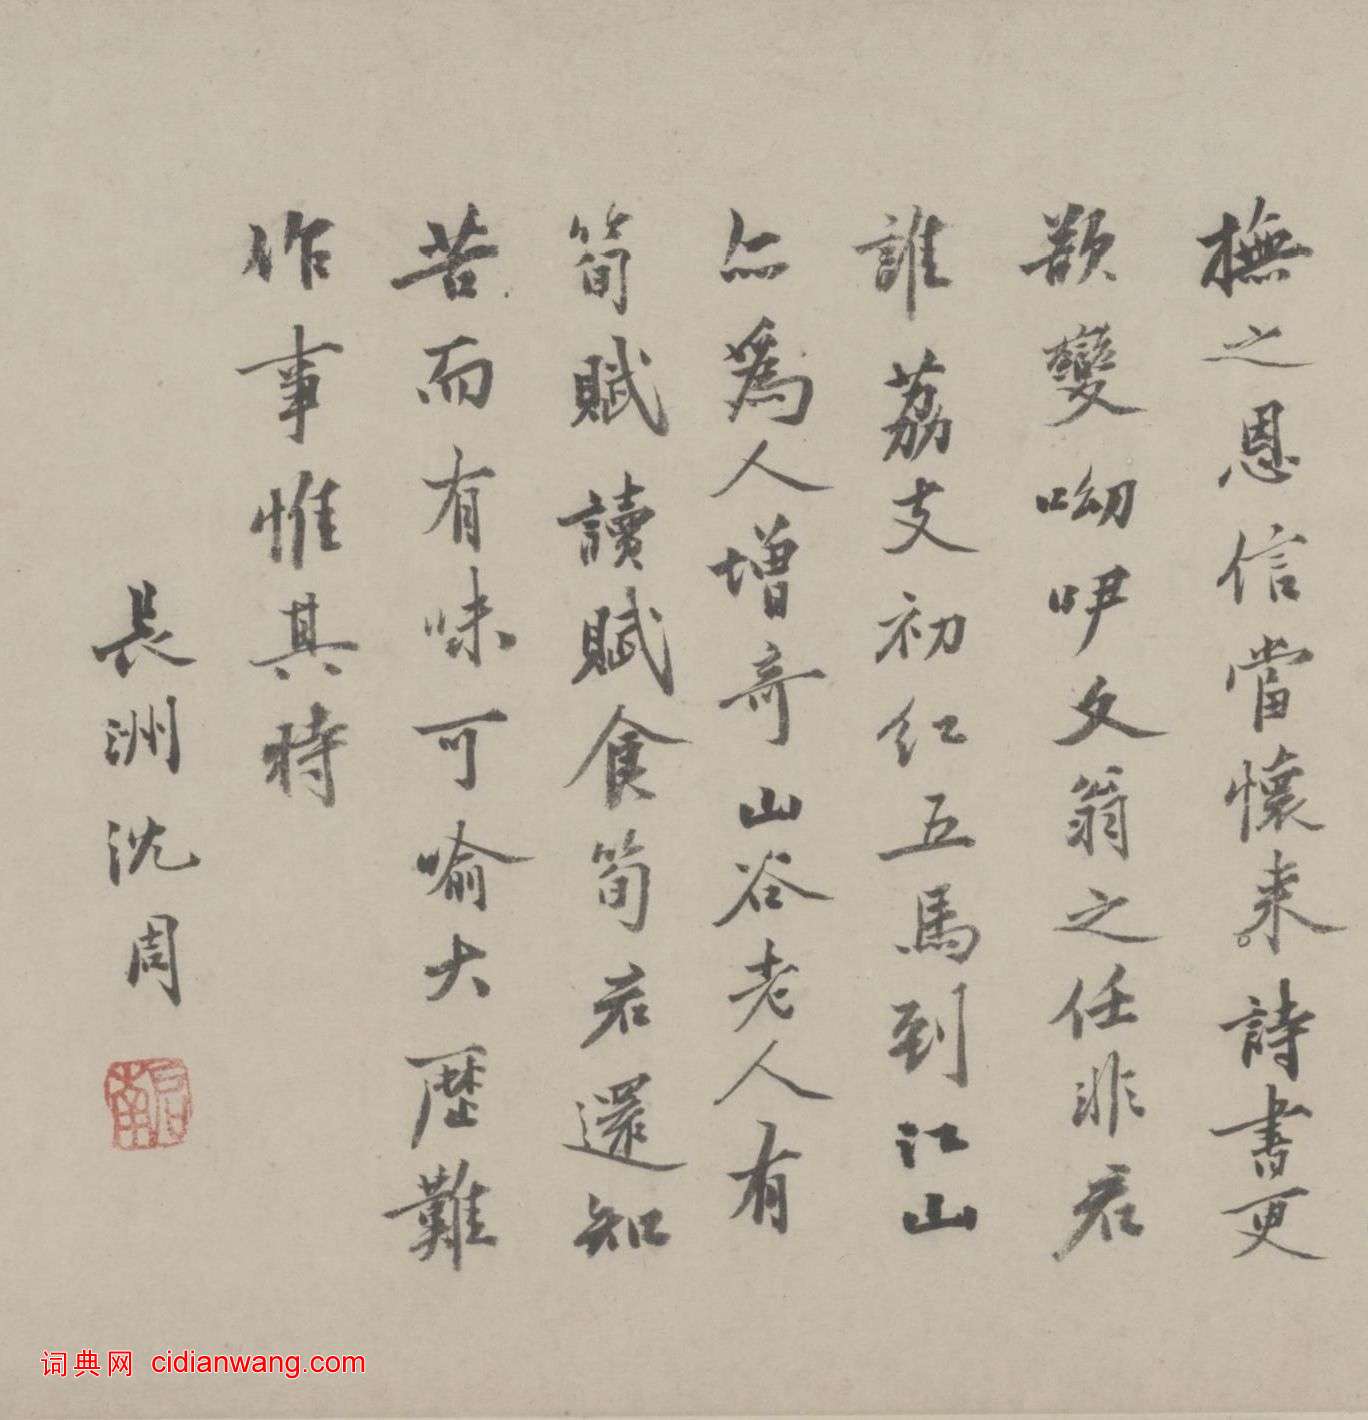 撫之恩信當懷来詩書更
欲變呦咿文翁之任非君
誰荔支初紅五馬到江山
亦為人增奇山谷老人有
筍賦讀賦食筍君還知
苦而有味可喻大歷難
作事惟其時
長洲沈周
啟南
词典网 cidianwang.com